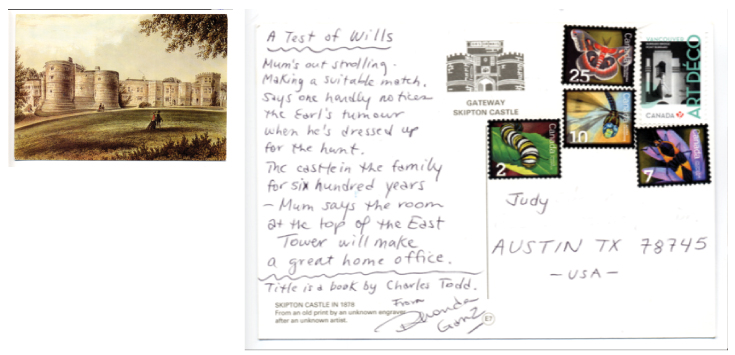 A Test of Wills
Mum's out strolling.
Making a suitable match.
Says one hardly notices
the Earl's tumour
when he's dressed up
for the hunt.
The castle in the family
for six hundred years
- Mum says the room
at the top of the East
Tower will make
a great home office.
Title is a book by Charles Todd.
From
Rhonda
Ganz
SKIPTON CASTLE IN 1878
From an old print by an unknown engraver
after an unknown artist.
E7
GATEWAY
SKIPTON CASTLE
Canada
25
VANCOUVER
CANADA P
ART DECO
Canada
10
Canada
2
Canada
7
Judy
AUSTIN TX 78745
- USA -